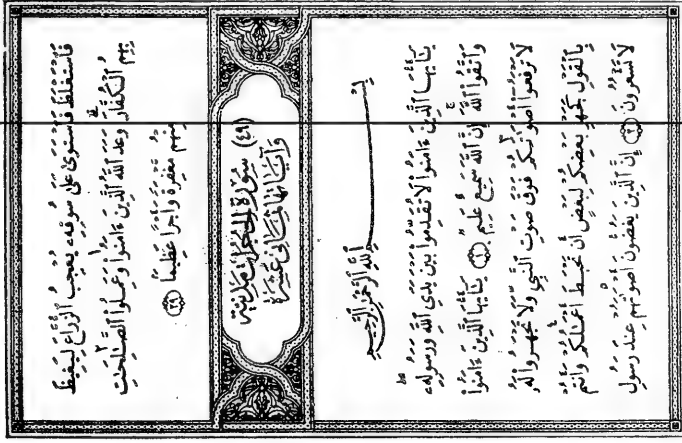 فَٱسْتَغْلَظَ فَٱسْتَوَىٰ عَلَىٰ سُوقِهِۦ يُعْجِبُ ٱلزُّرَّاعَ لِيَغِيظَ
بِهِمُ ٱلْكُفَّارَ وَعَدَ ٱللَّهُ ٱلَّذِينَ ءَامَنُوا۟ وَعَمِلُوا۟ ٱلصَّـٰلِحَـٰتِ
مِنْهُم مَّغْفِرَةً وَأَجْرًا عَظِيمًا ﴿٢٩﴾
(٤٩) سُورَةُ الحُجُرَاتِ مَدَنِيَّة
وَآيَاتُهَا ثَمَانِي عَشْرَة
بِسْمِ ٱللَّهِ ٱلرَّحْمَـٰنِ ٱلرَّحِيمِ
يَـٰٓأَيُّهَا ٱلَّذِينَ ءَامَنُوا۟ لَا تُقَدِّمُوا۟ بَيْنَ يَدَىِ ٱللَّهِ وَرَسُولِهِۦ
وَٱتَّقُوا۟ ٱللَّهَ إِنَّ ٱللَّهَ سَمِيعٌ عَلِيمٌ ﴿١﴾ يَـٰٓأَيُّهَا ٱلَّذِينَ ءَامَنُوا۟
لَا تَرْفَعُوٓا۟ أَصْوَٰتَكُمْ فَوْقَ صَوْتِ ٱلنَّبِىِّ وَلَا تَجْهَرُوا۟ لَهُۥ
بِٱلْقَوْلِ كَجَهْرِ بَعْضِكُمْ لِبَعْضٍ أَن تَحْبَطَ أَعْمَـٰلُكُمْ وَأَنتُمْ
لَا تَشْعُرُونَ ﴿٢﴾ إِنَّ ٱلَّذِينَ يَغُضُّونَ أَصْوَٰتَهُمْ عِندَ رَسُولِ